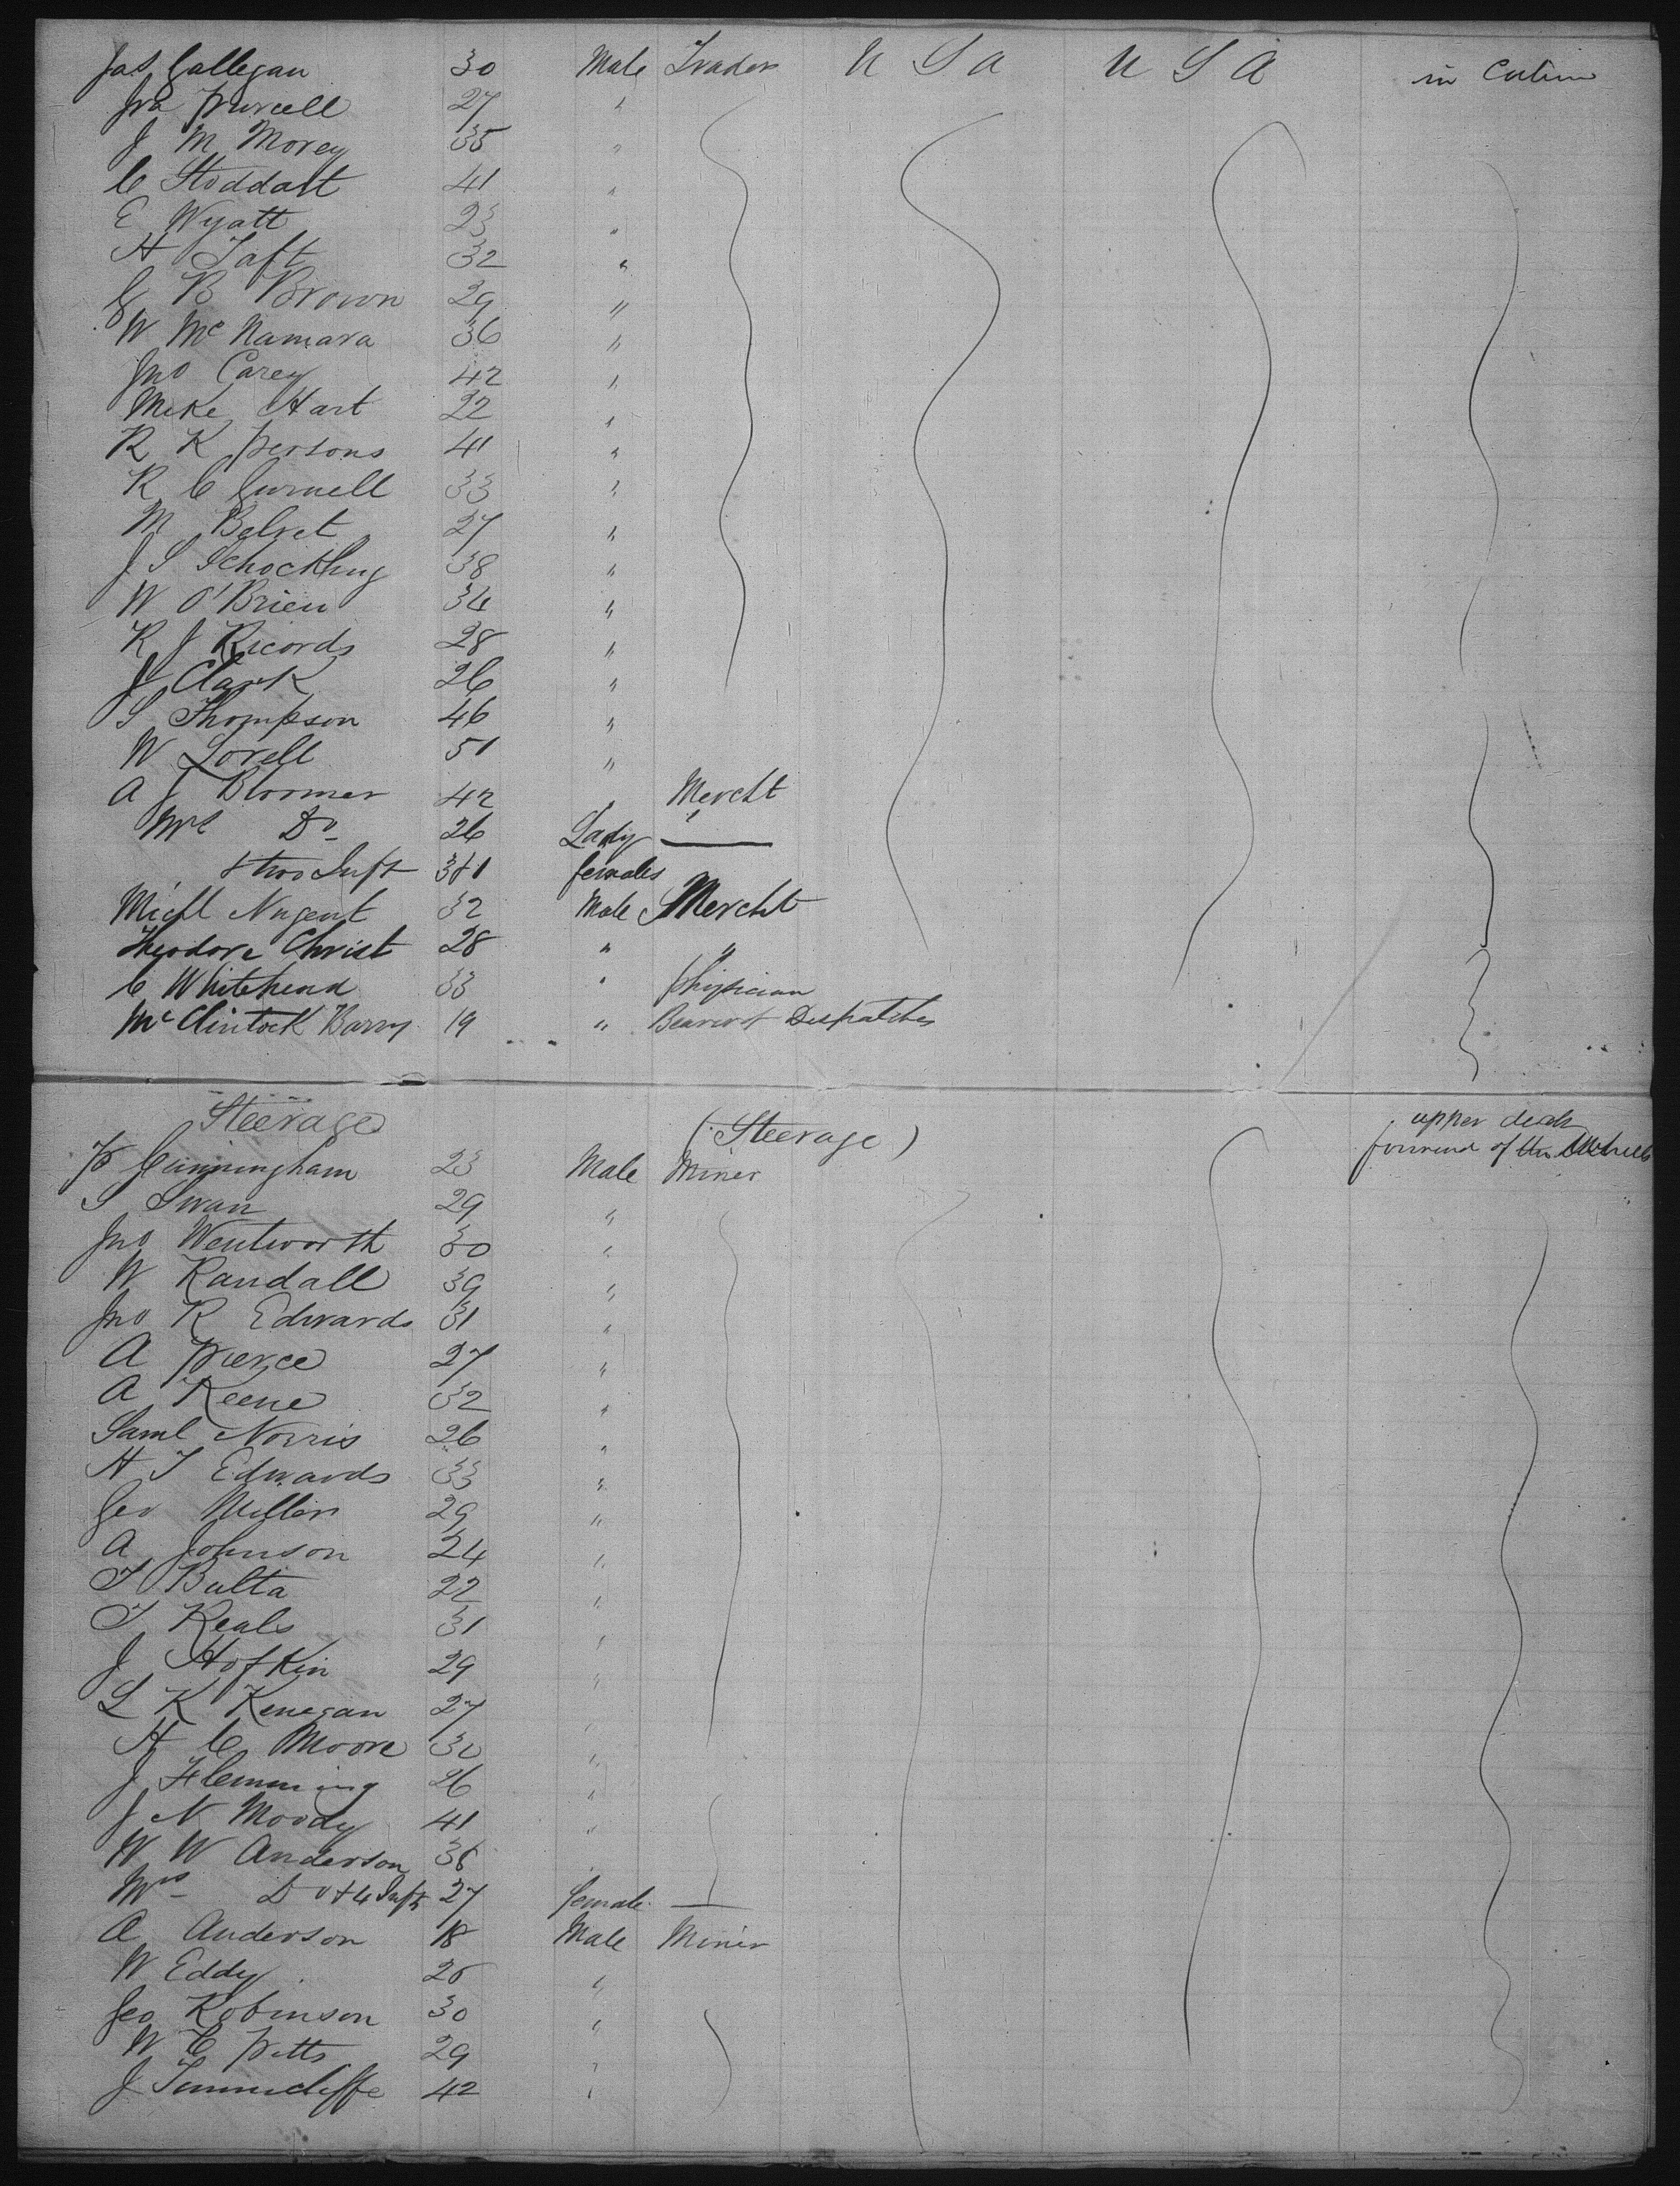 Jas Gallegan 30 Male Trader U S A U S A in Cabin
Ira Purcell 27 "
J M Morey 35 "
C Stoddart 41 "
E Wyatt 23 "
H Taft 32 "
G B Brown 29 "
W McNamara 36 "
Jno Carey 42 "
Mike Hart 22 "
R K Persons 41 "
R C Gurnell 33 "
M Belvet 27 "
J S Schockling 38 "
W O'Brien 34 "
R J Ricords 28 "
J Clark 26 "
S Thompson 46 "
W Lovell 51 "
A J Bloomer 42 " Mercht
Mrs Do 26 Lady —
& two Inft 3&1 females
Michl Nugent 32 Male Mercht
Theodore Christ 28 " "
C Whitehead 33 " Physician
McClintock Barry 19 " Bearer of Dispatches
Steerage (Steerage) upper deck
forward of the Wheels
P Cunningham 23 Male Miner
S Swan 29 "
Jno Wentworth 30 "
W Randall 39 "
Jno R Edwards 31 "
A Pierce 27 "
A Keene 32 "
Saml Norris 26 "
H T Edwards 33 "
Geo Miller 29 "
A Johnson 24 "
T Bulta 22 "
T Reals 31 "
J Hofkin 29 "
L K Kenegan 27 "
H C Moore 30 "
J Flemming 26 "
J N Moody 41 "
W W Anderson 36 "
Mrs Do & 4 Infts 27 female —
A Anderson 18 Male Miner
W Eddy 25 "
Geo Robinson 30 "
W C Pitts 29 "
J Tunnicliffe 42 "